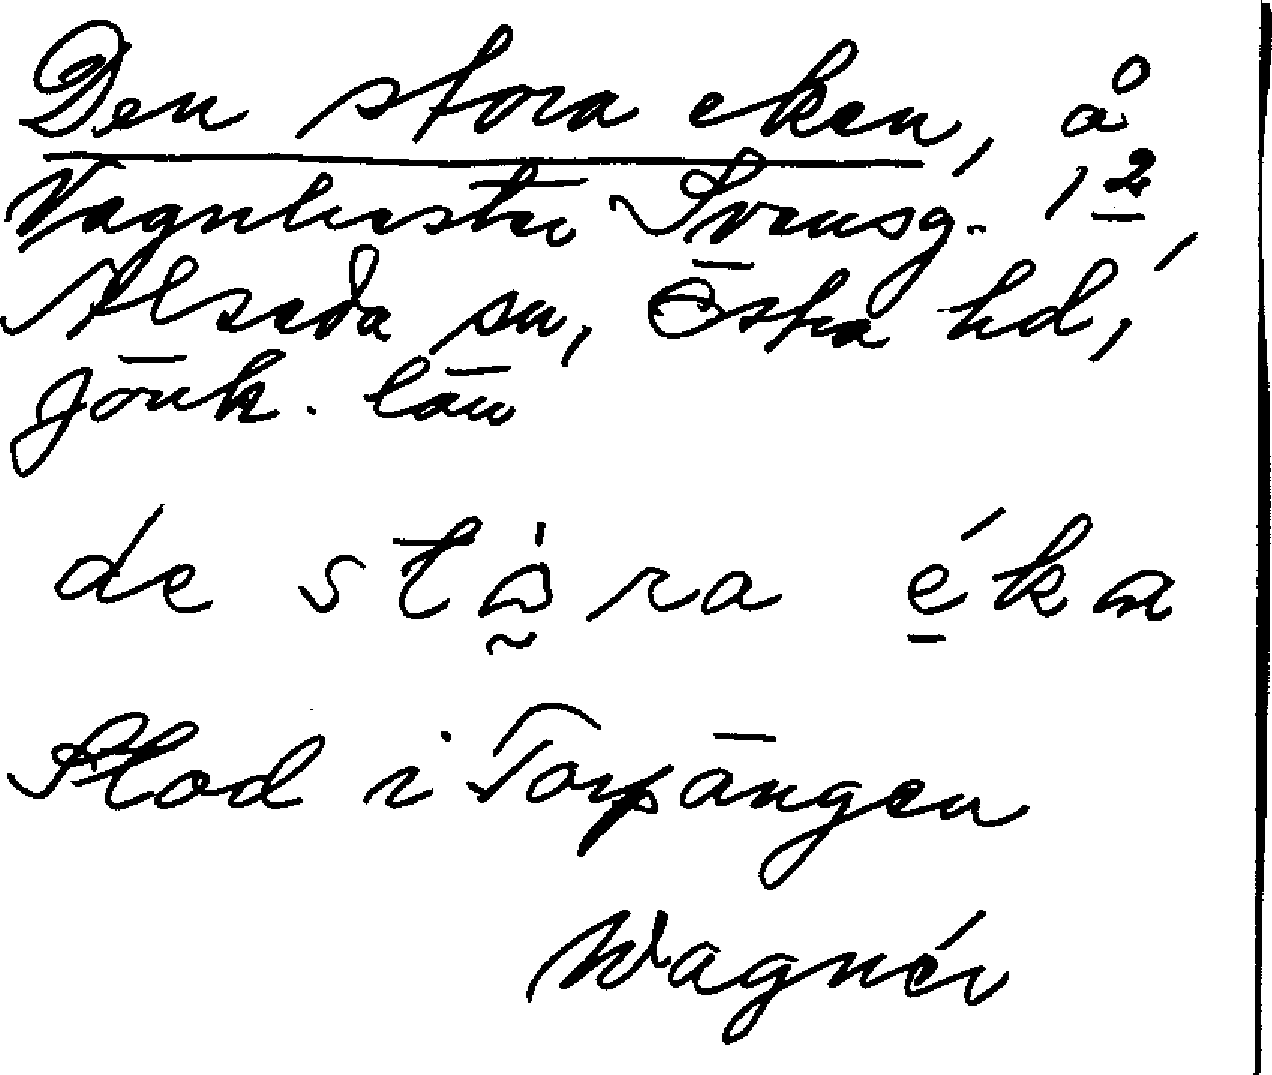 Den stora eken, å
Vagnhester Svensg. 1 2/,
Alseda sn, Östra hd,
Jönk. län
de stå̰ra éka
Stod i Torpängen
Wagnér